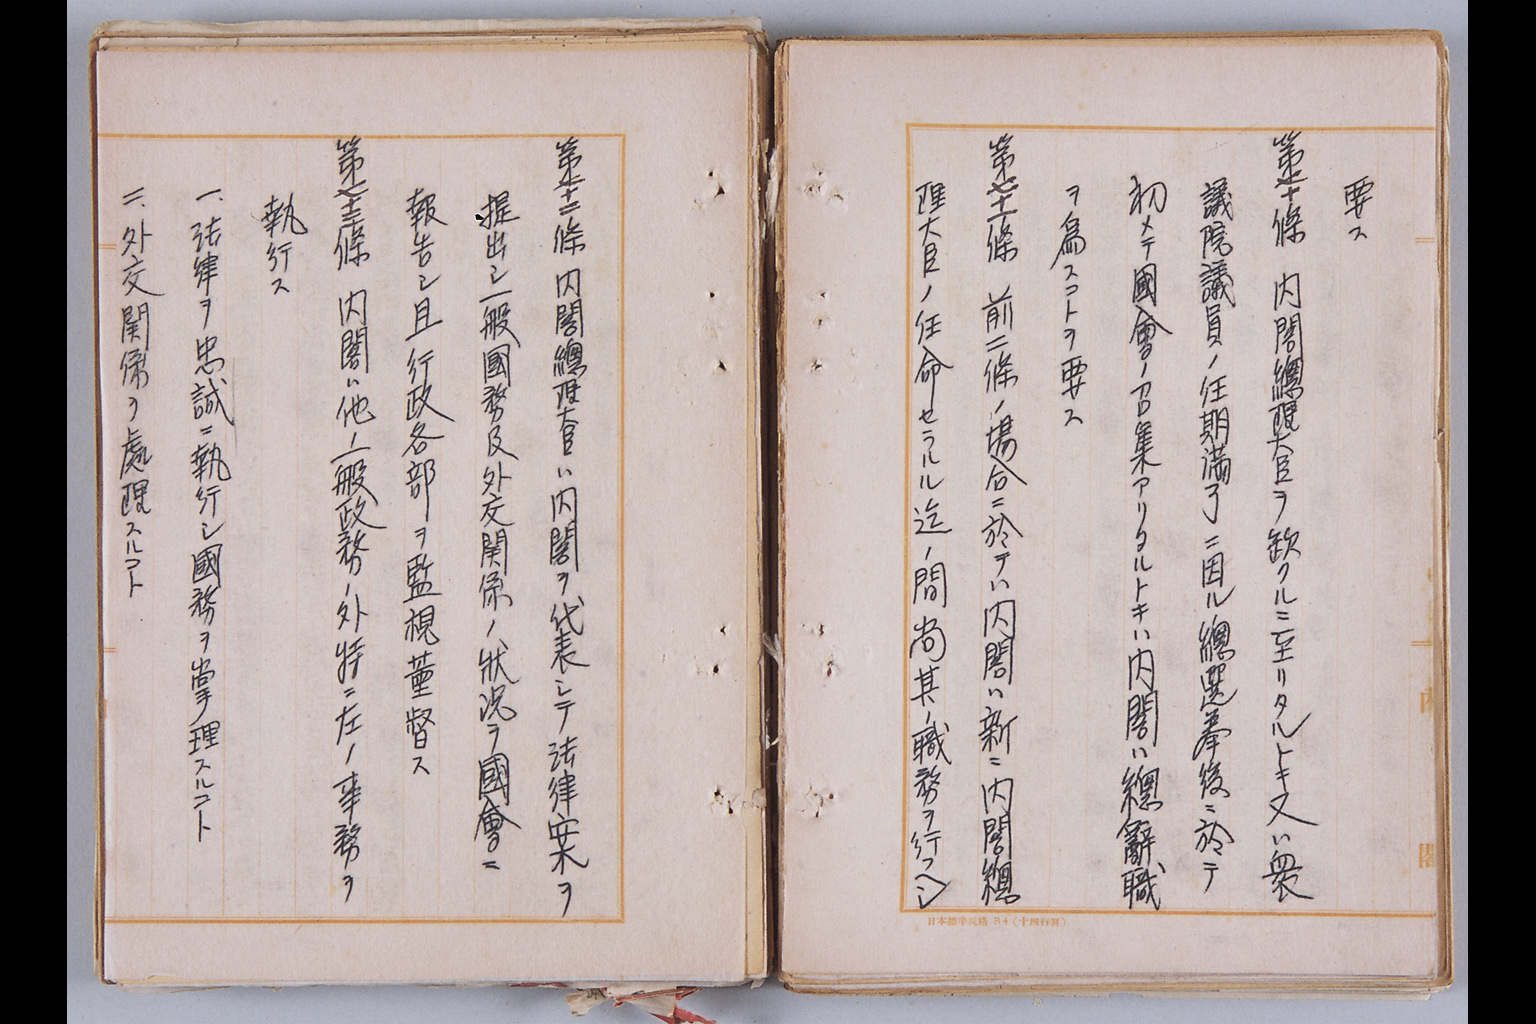 要ス
第七十條 内閣總理大臣ヲ欽クルニ至リタルトキ又ハ衆
議院議員ノ任期滿了ニ因ル總選擧後ニ於テ
初メテ國會ノ召集アリタルトキハ内閣ハ總辭職
ヲ爲スコトヲ要ス
第七十一條 前二條ノ場合ニ於テハ内閣ハ新ニ内閣總
理大臣ノ任命セラルル迄ノ間尚其ノ職務ヲ行フヘシ
日本標準規格B4(十四行罫)
第七十二條 内閣總理大臣ハ内閣ヲ代表シテ法律案ヲ
提出シ一般國務及外交関係ノ狀況ヲ國會ニ
報告シ且行政各部ヲ監視董督ス
第七十三條 内閣ハ他ノ一般政務ノ外特ニ左ノ事務ヲ
執行ス
一、法律ヲ忠誠ニ執行シ國務ヲ掌理スルコト
二、外交関係ヲ處理スルコト